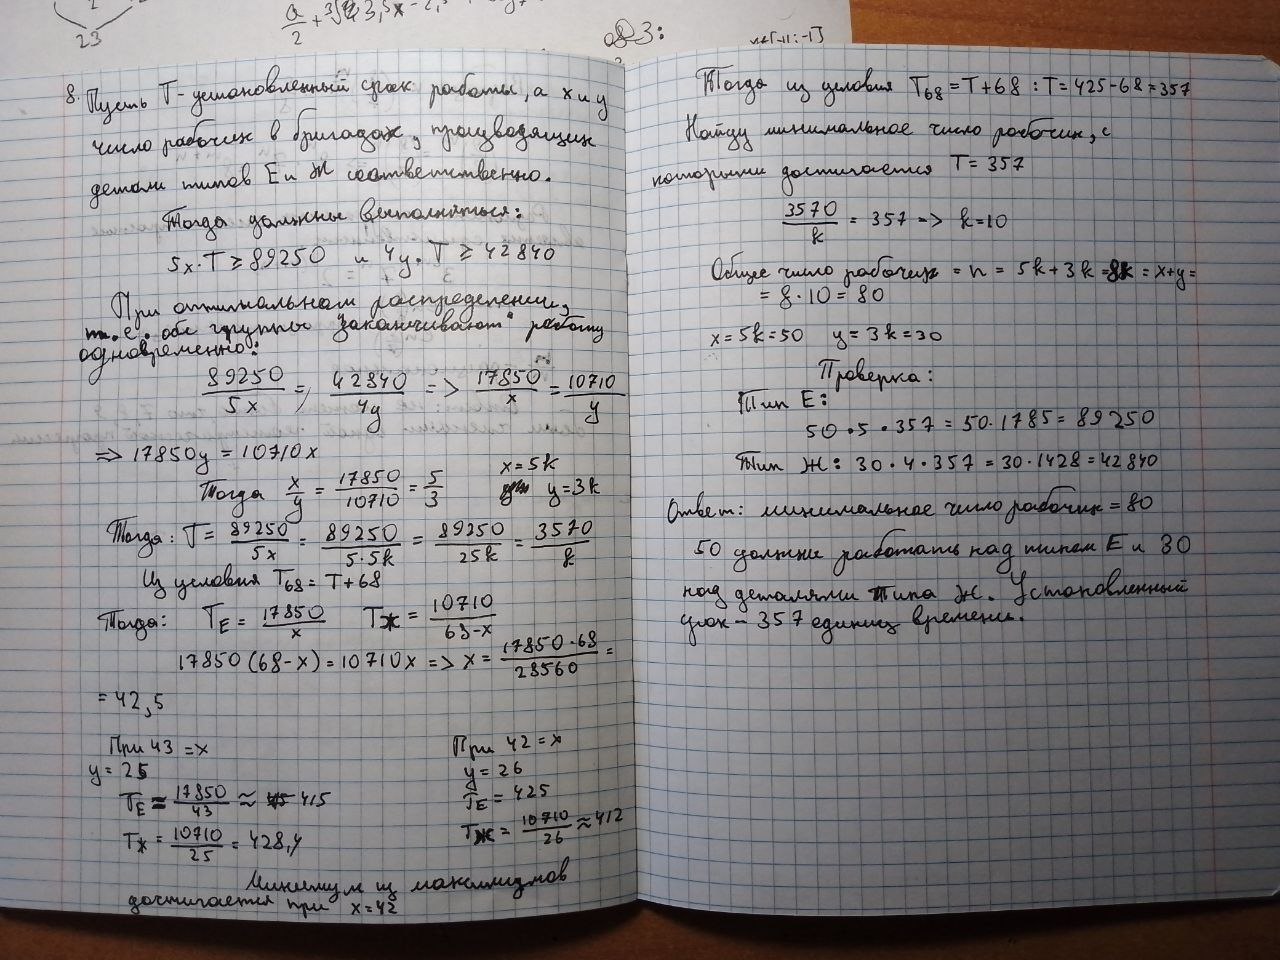 2
23
a/2 + ³√
3,5x - 2,
3:
x∈[-11;-1]
8. Пусть T - установленный срок работы, а x и y
число рабочих в бригадах, производящих
детали типов Е и Ж соответственно.
Тогда должны выполняться:
5x·T ≥ 89250 и 4y·T ≥ 42840
При оптимальном распределении,
т.е. обе группы "заканчивают" работу
одновременно:
89250/5x = 42840/4y => 17850/x = 10710/y
=> 17850y = 10710x
Тогда x/y = 17850/10710 = 5/3 x=5k
y=3k
Тогда: T = 89250/5x = 89250/5·5k = 89250/25k = 3570/k
Из условия T₆₈ = T+68
Тогда: T_E = 17850/x T_Ж = 10710/68-x
17850(68-x) = 10710x => x = 17850·68/28560 =
= 42,5
При 43 = x
y = 25
T_E = 17850/43 ≈ 415
T_Ж = 10710/25 = 428,4
При 42 = x
y = 26
T_E = 425
T_Ж = 10710/26 ≈ 412
Минимум из максимумов
достигается при x=42
Тогда из условия T₆₈ = T+68 : T = 425-68 = 357
Найду минимальное число рабочих, с
которыми достигается T = 357
3570/k = 357 => k=10
Общее число рабочих = n = 5k+3k = 8k = x+y =
= 8·10 = 80
x = 5k = 50 y = 3k = 30
Проверка:
Тип Е:
50·5·357 = 50·1785 = 89250
Тип Ж: 30·4·357 = 30·1428 = 42840
Ответ: минимальное число рабочих = 80
50 должне работать над типом Е и 30
над деталями типа Ж. Установленный
срок - 357 единиц времени.